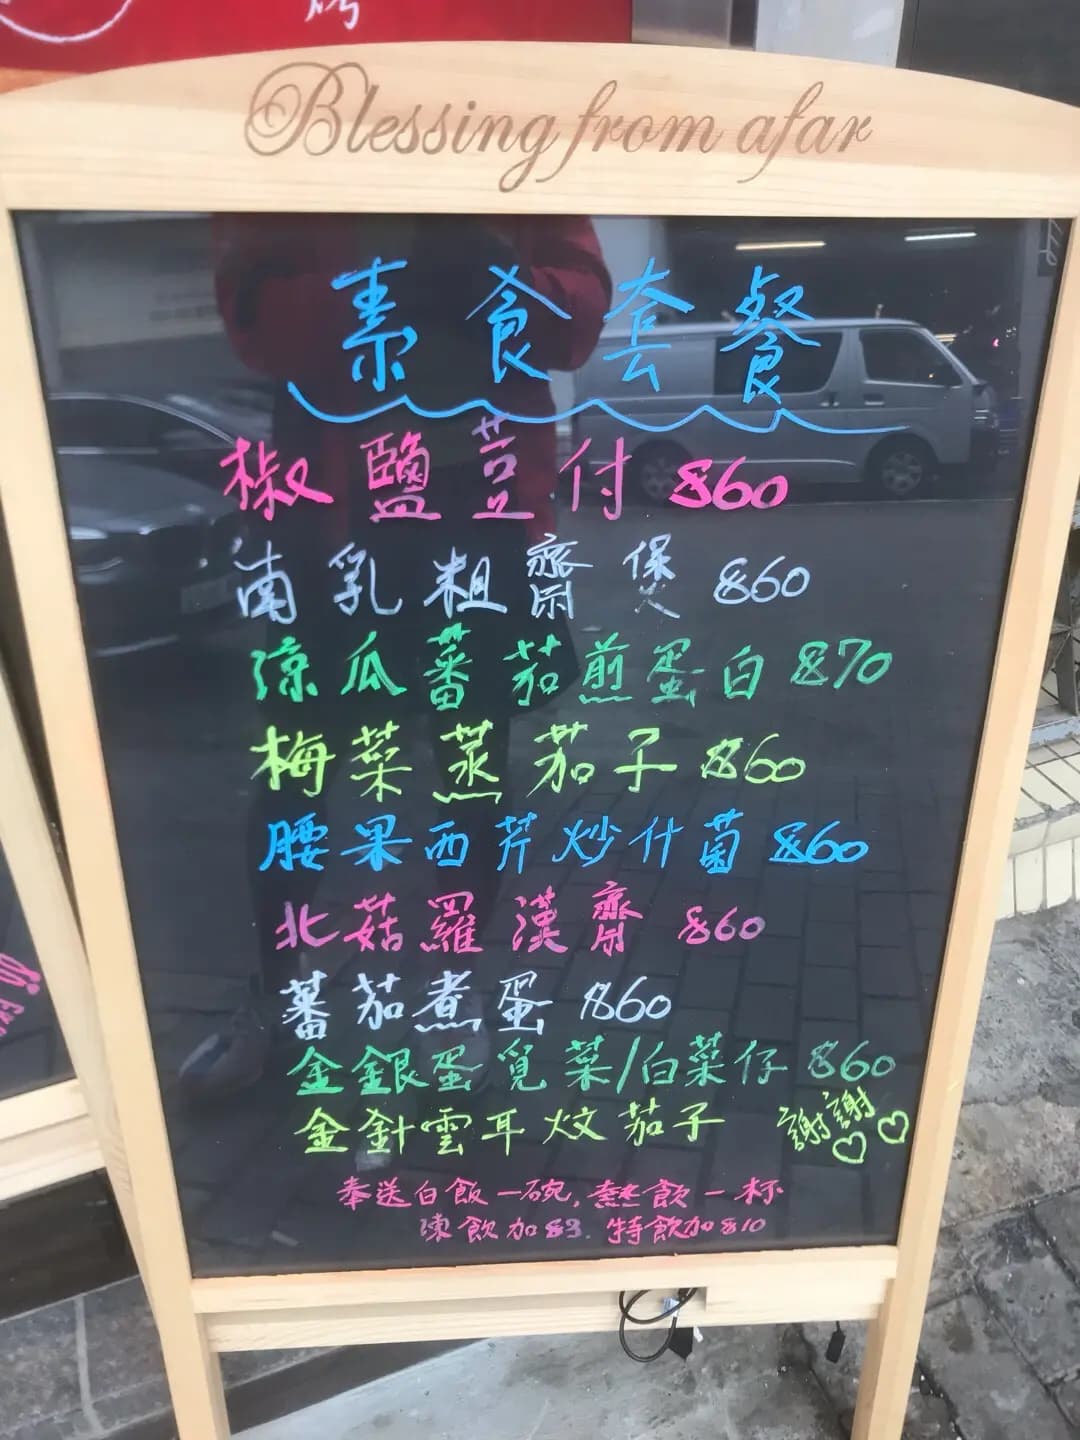 Blessing from afar
素食套餐
椒鹽荳付 $60
南乳粗齋煲 $60
涼瓜蕃茄煎蛋白 $70
梅菜蒸茄子 $60
腰果西芹炒什菌 $60
北菇羅漢齋 $60
蕃茄煮蛋 $60
金銀蛋覓菜/白菜仔 $60
金針雲耳炆茄子 謝謝♡♡
奉送白飯一碗,熱飲一杯
凍飲加$3. 特飲加$10